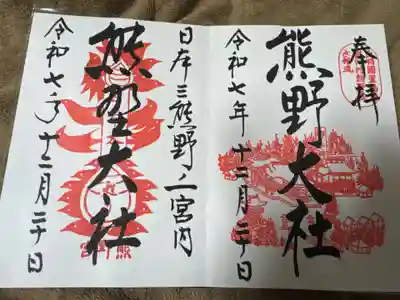 奉拝
熊野大社
令和七年十二月二十日
日本三熊野ノ一宮内
熊野大社
令和七年十二月二十日